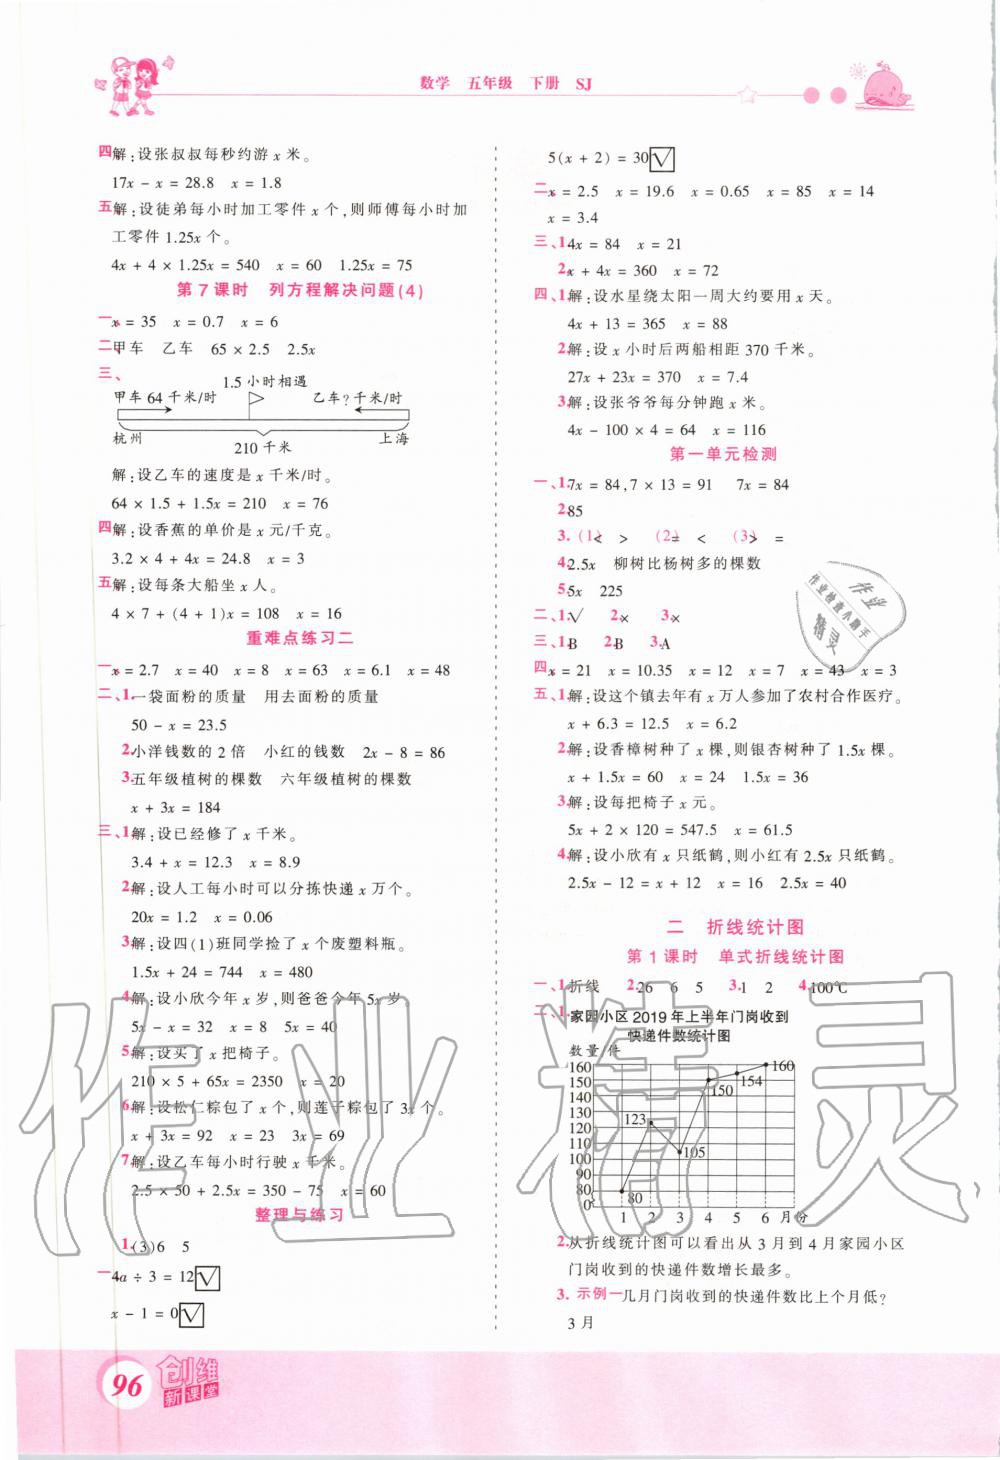 数学 五年级 下册 SJ
四、解:设张叔叔每秒约游 x 米。
17x - x = 28.8 x = 1.8
五、解:设徒弟每小时加工零件 x 个,则师傅每小时加
工零件 1.25x 个。
4x + 4 × 1.25x = 540 x = 60 1.25x = 75
第 7 课时 列方程解决问题(4)
一、x = 35 x = 0.7 x = 6
二、甲车 乙车 65 × 2.5 2.5x
三、
1.5 小时相遇
甲车 64 千米/时 乙车? 千米/时
杭州 210 千米 上海
解:设乙车的速度是 x 千米/时。
64 × 1.5 + 1.5x = 210 x = 76
四、解:设香蕉的单价是 x 元/千克。
3.2 × 4 + 4x = 24.8 x = 3
五、解:设每条大船坐 x 人。
4 × 7 + (4 + 1)x = 108 x = 16
重难点练习二
一、x = 2.7 x = 40 x = 8 x = 63 x = 6.1 x = 48
二、1.一袋面粉的质量 用去面粉的质量
50 - x = 23.5
2.小洋钱数的 2 倍 小红的钱数 2x - 8 = 86
3.五年级植树的棵数 六年级植树的棵数
x + 3x = 184
三、1.解:设已经修了 x 千米。
3.4 + x = 12.3 x = 8.9
2.解:设人工每小时可以分拣快递 x 万个。
20x = 1.2 x = 0.06
3.解:设四(1)班同学捡了 x 个废塑料瓶。
1.5x + 24 = 744 x = 480
4.解:设小欣今年 x 岁,则爸爸今年 5x 岁
5x - x = 32 x = 8 5x = 40
5.解:设买了 x 把椅子。
210 × 5 + 65x = 2350 x = 20
6.解:设松仁粽包了 x 个,则莲子粽包了 3x 个。
x + 3x = 92 x = 23 3x = 69
7.解:设乙车每小时行驶 x 千米。
2.5 × 50 + 2.5x = 350 - 75 x = 60
整理与练习
1.(3)6 5
一、4a ÷ 3 = 12 √
x - 1 = 0 √
5(x + 2) = 30 √
二、x = 2.5 x = 19.6 x = 0.65 x = 85 x = 14
x = 3.4
三、1.4x = 84 x = 21
2.x + 4x = 360 x = 72
四、1.解:设水星绕太阳一周大约要用 x 天。
4x + 13 = 365 x = 88
2.解:设 x 小时后两船相距 370 千米。
27x + 23x = 370 x = 7.4
3.解:设张爷爷每分钟跑 x 米。
4x - 100 × 4 = 64 x = 116
第一单元检测
一、1.7x = 84,7 × 13 = 91 7x = 84
2.85
3. (1)< > (2)= < (3)> =
4.2.5x 柳树比杨树多的棵数
5.5x 225
二、1.√ 2.× 3.×
三、1.B 2.B 3.A
四、x = 21 x = 10.35 x = 12 x = 7 x = 43 x = 3
五、1.解:设这个镇去年有 x 万人参加了农村合作医疗。
x + 6.3 = 12.5 x = 6.2
2.解:设香樟树种了 x 棵,则银杏树种了 1.5x 棵。
x + 1.5x = 60 x = 24 1.5x = 36
3.解:设每把椅子 x 元。
5x + 2 × 120 = 547.5 x = 61.5
4.解:设小欣有 x 只纸鹤,则小红有 2.5x 只纸鹤。
2.5x - 12 = x + 12 x = 16 2.5x = 40
二 折线统计图
第 1 课时 单式折线统计图
一、1.折线 2.26 6 5 3.1 2 4.100℃
二、1.家园小区 2019 年上半年门岗收到
快递件数统计图
数量/件
160 160
150 154
140 150
130
120 123
110
100 105
90
80 80
0 1 2 3 4 5 6 月份
2.从折线统计图可以看出从 3 月到 4 月家园小区
门岗收到的快递件数增长最多。
3. 示例一:几月门岗收到的快递件数比上个月低?
3 月
96 创维
新课堂
作业
作业检查小助手
精灵
作业精灵